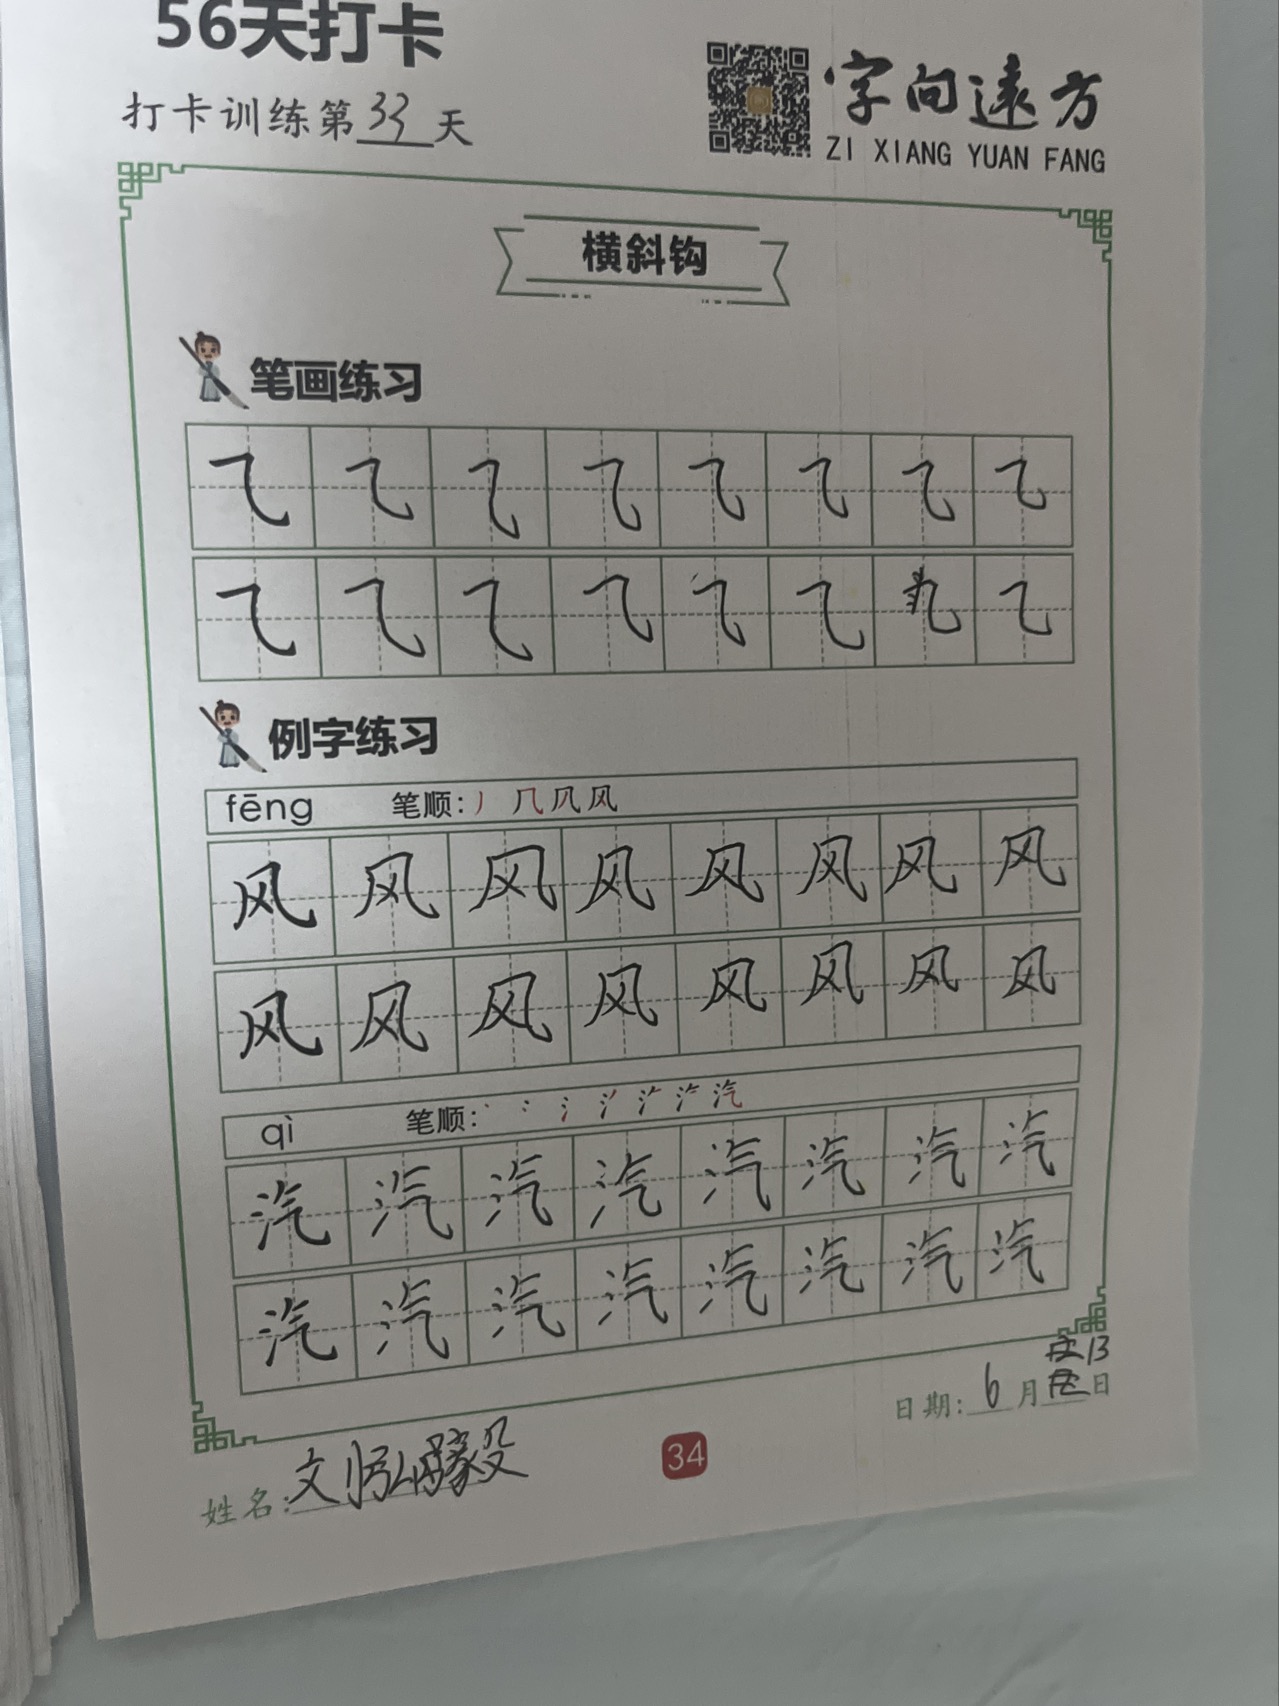 56天打卡
打卡训练第33天
字向远方
ZI XIANG YUAN FANG
横斜钩
笔画练习
⺄ ⺄ ⺄ ⺄ ⺄ ⺄ ⺄ ⺄
⺄ ⺄ ⺄ ⺄ ⺄ ⺄ ⺄ ⺄
例字练习
fēng 笔顺: 丿 几 凤 风
风 风 风 风 风 风 风 风
风 风 风 风 风 风 风 风
qì 笔顺: 汽
汽 汽 汽 汽 汽 汽 汽 汽
汽 汽 汽 汽 汽 汽 汽 汽
日期: 6月13日
34
姓名: 文